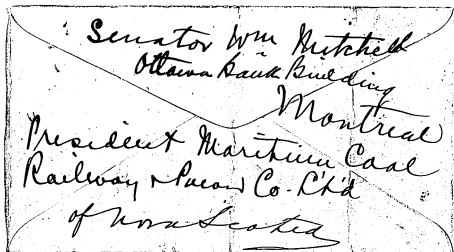 Senator Wm Mitchell
Ottawa Bank Building
Montreal
President Maritime Coal
Railway & Power Co. Lt'd
of Nova Scotia